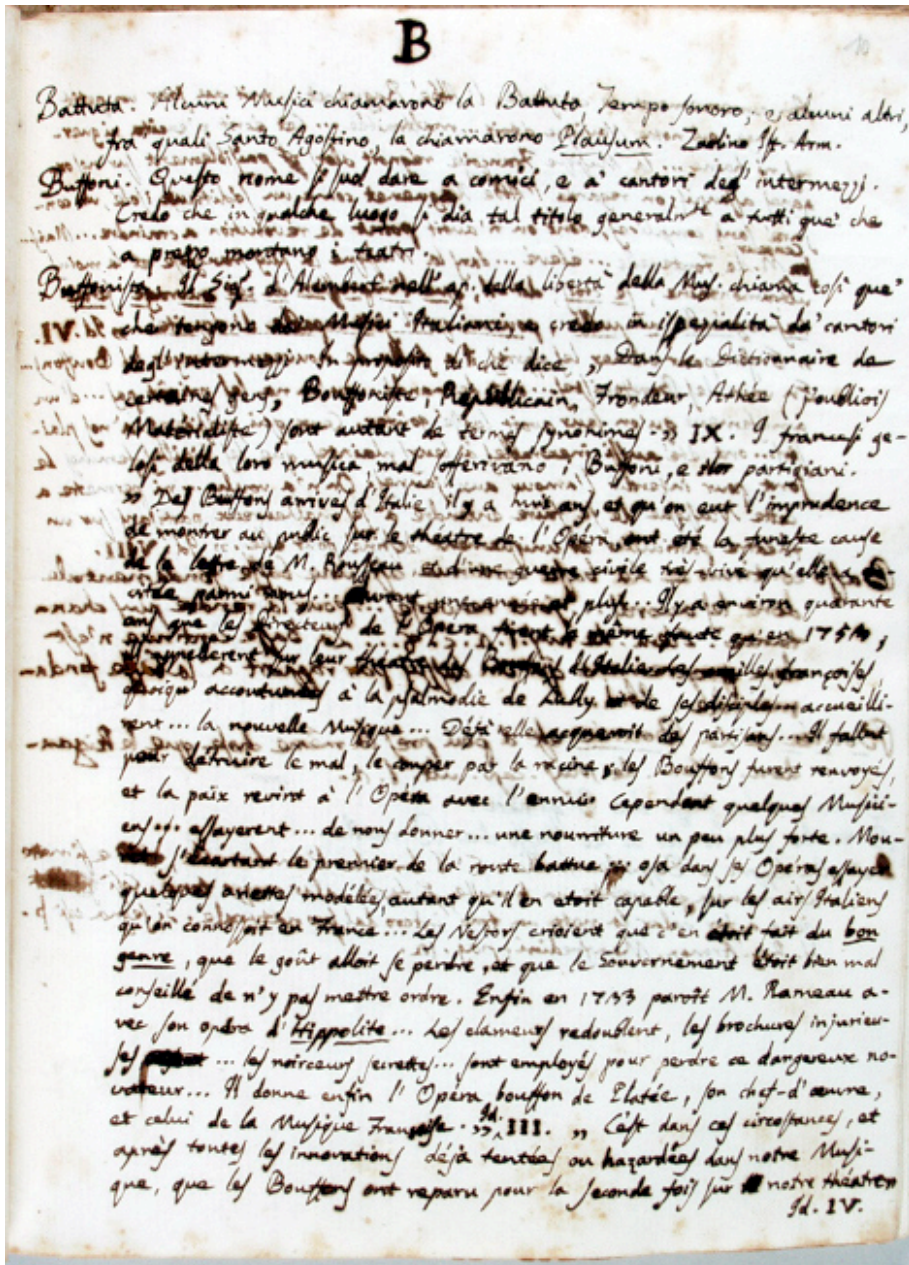 B
10
Battuta. Alcuni Musici chiamarono la Battuta, Tempo sonoro; e alcuni altri,
fra quali Santo Agostino, la chiamarono Plausum. Zarlino Ist. Arm.
Buffoni. Questo nome si suol dare a comici, e a' cantori degl' intermezzi.
Credo che in qualche luogo si dia tal titolo generalmte a tutti que' che
a prezzo montano i teatri.
Buffonista. Il Sigr. d'Alembert nell' op. della libertà della Mus. chiama così que'
che tengono Musici Italiani, e credo in ispezialità da' cantori
degl' intermezzi. In proposito di che dice „ Dans le Dictionnaire de
certains gens, Bouffoniste, Republicain, Frondeur, Athée (j'oubliois
Materialiste) sont autant de termes synonimes. „ IX. I francesi ge-
losi della loro musica, mal sofferivano i Buffoni, e i lor partigiani.
„ Des Buffons arrives d'Italie il y a huit ans, et qu'on eut l'imprudence
de montrer au public sur le théatre de l'Opéra, ont eté la funeste cause
de la lettre de M. Rousseau, et d'une guerre civile très vive qu'elle a ex-
citée parmi nous... Il y a environ quarante
ans que les Directeurs de l'Opera firent la même faute qu'en 1753,
ils appellerent sur leur théatre des Bouffons d'Italie. Les oreilles françoises,
quoiqu' accoutumées à la psalmodie de Lully et de ses disciples... accueilli-
rent... la nouvelle Musique... Déjà elle acqueroit des partisans... Il fallut
pour détruire le mal, le couper par la racine; les Bouffons furent renvoyés,
et la paix revint à l'Opéra avec l'ennui. Cependant quelques Musici-
ens... essayerent... de nous donner... une nourriture un peu plus forte. Mou-
ret s'écartant le premier de la route battue osa dans ses Operas essayer
quelques ariettes modelées, autant qu'il en etoit capable, sur les airs Italiens
qu'on connoissoit en France... Les Nestors crioient que c'en étoit fait du bon
genre, que le goût alloit se perdre, et que le Gouvernement étoit bien mal
conseillé de n'y pas mettre ordre. Enfin en 1733 paroît M. Rameau a-
vec son opéra d'Hippolite... Les clameurs redoublent, les brochures injurieu-
ses ... les noirceurs secrettes... sont employés pour perdre ce dangereux no-
vateur... Il donne enfin l'Opéra bouffon de Platée, son chef-d'œuvre,
et celui de la Musique Françoise. „ Id. III. „ C'est dans ces circostances, et
après toutes les innovations déjà tentées ou hazardées dans notre Musi-
que, que les Bouffons ont reparu pour la seconde fois sur notre théatre „
Id. IV.